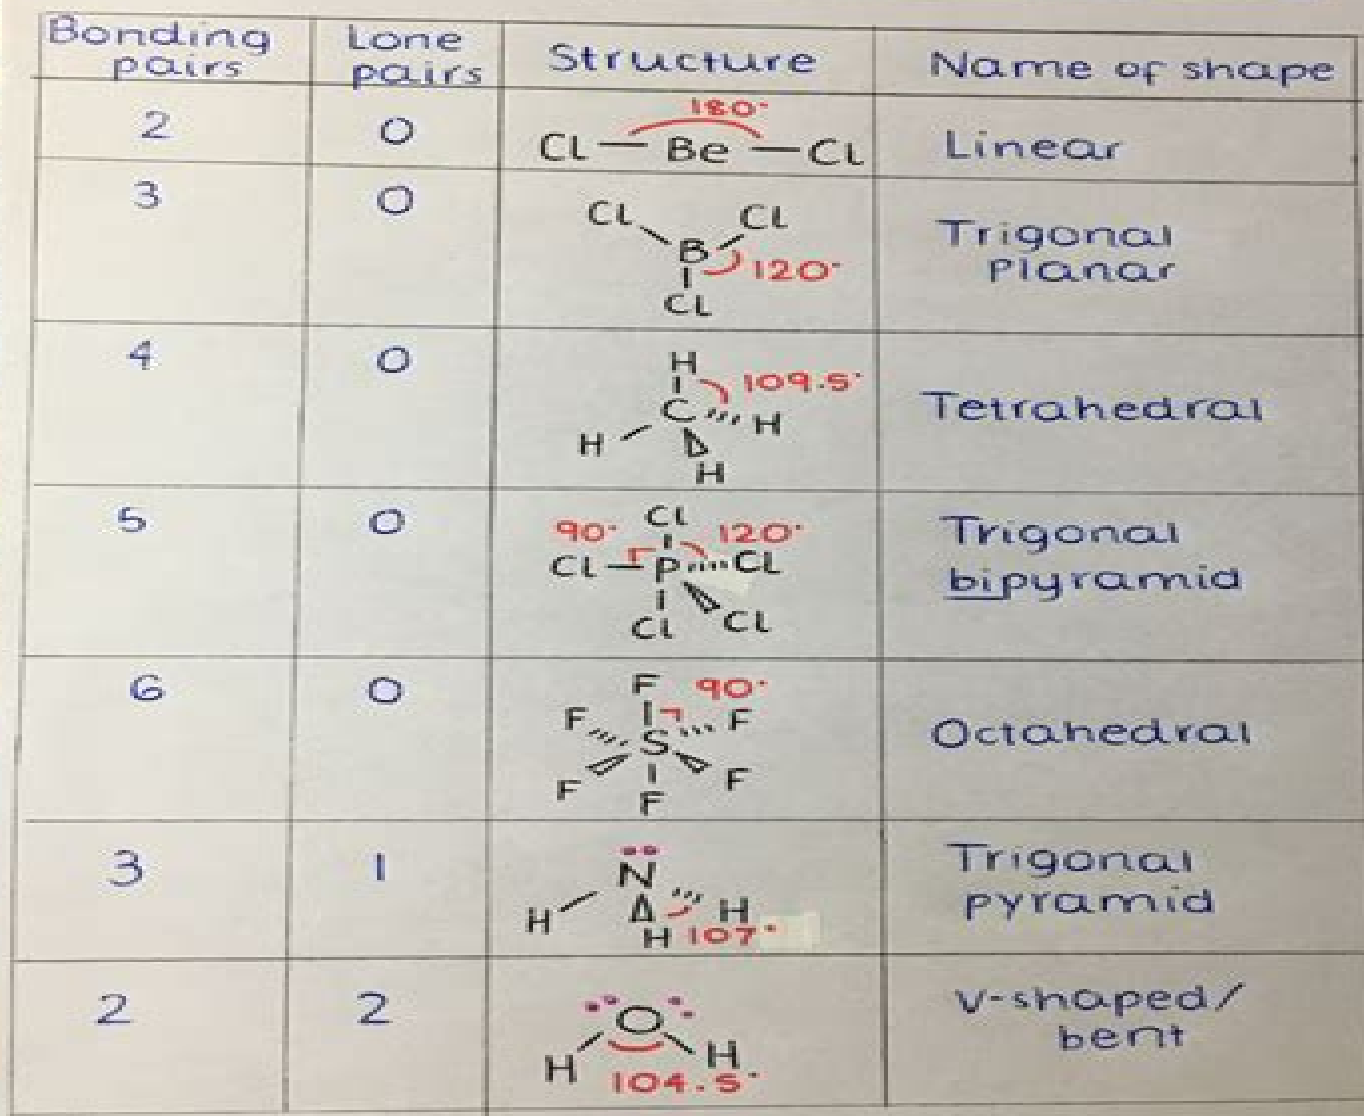 Bonding pairs
Lone pairs
Structure
Name of shape
2
0
180°
Cl — Be — Cl
Linear
3
0
Cl Cl
B
120°
Cl
Trigonal
Planar
4
0
H
109.5°
C
H H
H
Tetrahedral
5
0
Cl
90° 120°
Cl — P Cl
Cl Cl
Trigonal
bipyramid
6
0
F 90°
F F
S
F F
F
Octahedral
3
1
N
H H
H 107°
Trigonal
pyramid
2
2
O
H H
104.5°
V-shaped/
bent